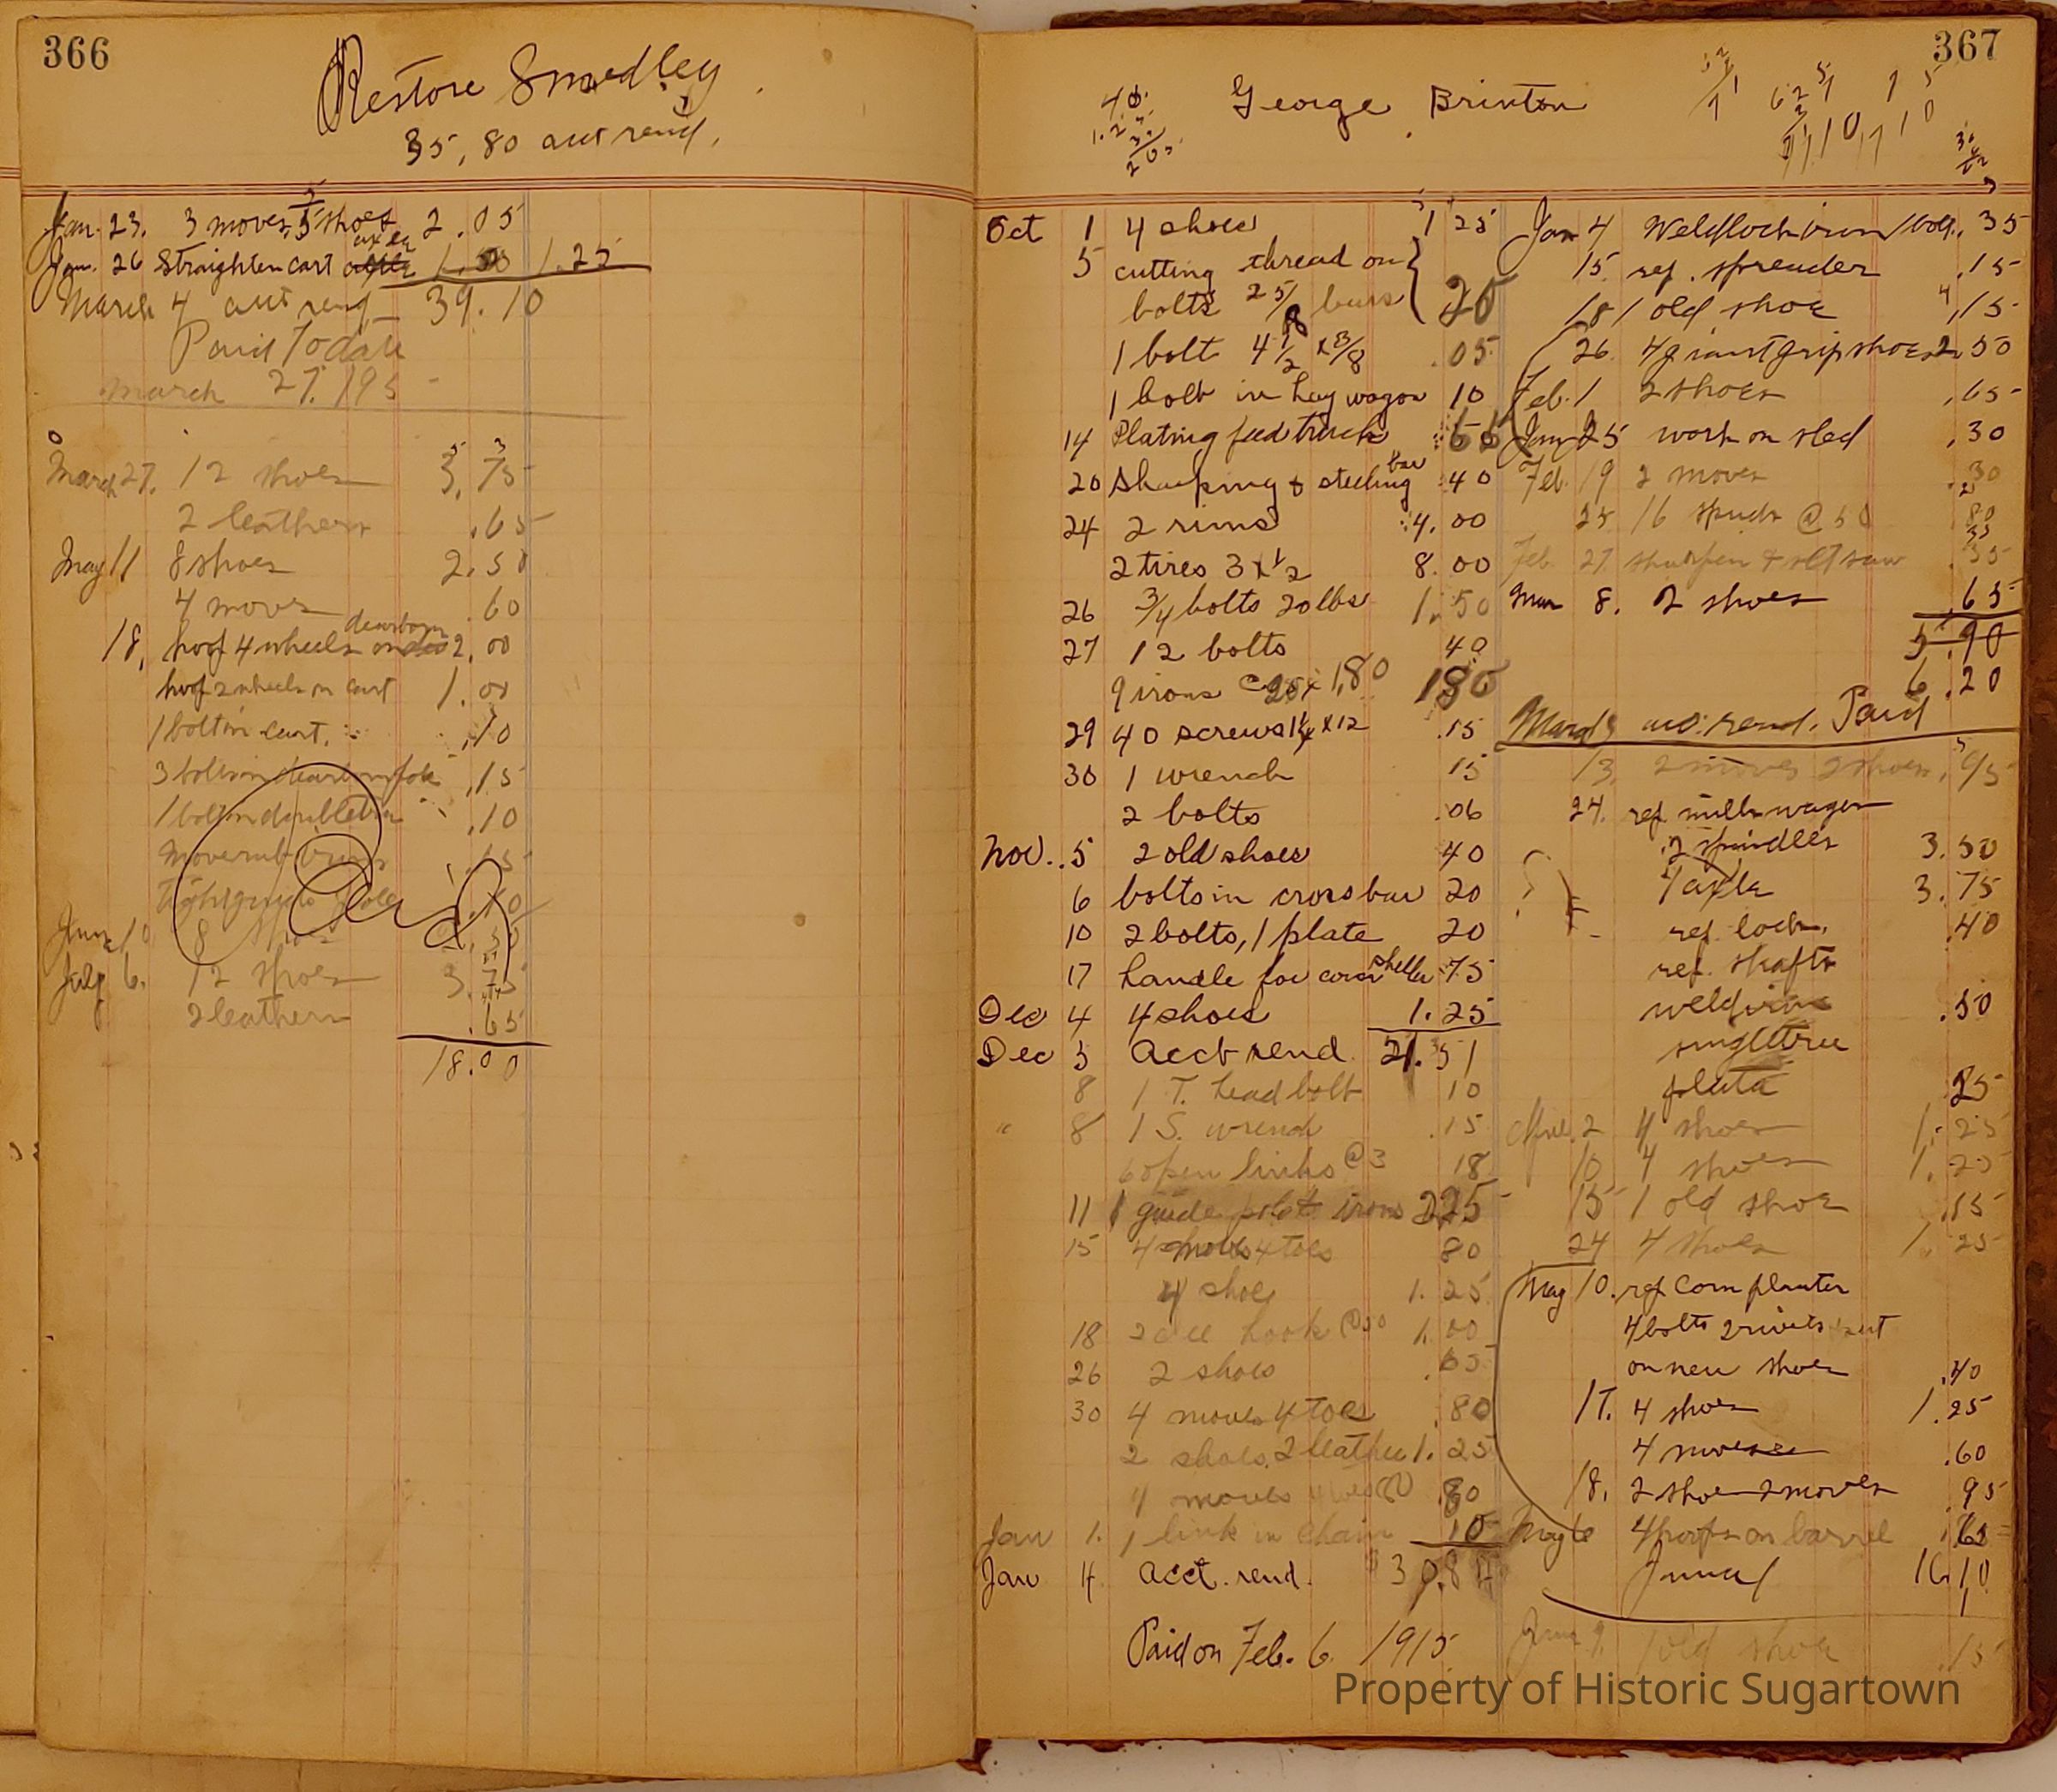 366
Restore Smedley
35,80 acct rend,
Jan. 23. 3 moves, 5 shoes 2.05
Jan. 26 Straighten cart axle 1.25
March 4 acct rend 39.10
Paid Todate
March 27. 195
March 27. 12 shoes 3.75
2 leathers .65
May 11 8 shoes 2.50
4 moves .60
18, hoof 4 wheels on dearborn 2.00
hoof 2 wheels on cart 1.00
1 bolt in cart. .10
3 bolts in dearborn .15
1 bolt in doubletree .10
.15
8 shoes
Paid
July 6. 12 shoes 3.75
2 leathers .65
18.00
367
George Brinton
Oct 1 4 shoes 1 25
5 cutting thread on
bolts 25/ burs 20
1 bolt 4 1/2 x 3/8 .05
1 bolt in hay wagon 10
14 Plating feed truck
20 Sharping & steeling bar 40
24 2 rims 4.00
2 tires 3 x 1/2 8.00
26 3/4 bolts 20 lbs 1.50
27 12 bolts 40
9 irons 1,80 180
29 40 screws 1 1/4 x 12 .15
30 1 wrench 15
2 bolts .06
Nov. 5 2 old shoes 40
6 bolts in crossbar 20
10 2 bolts, 1 plate 20
17 handle for corn sheller 75
Dec 4 4 shoes 1.25
Dec 5 acct rend. 21.51
8 1 T. head bolt 10
" 8 1 S. wrench .15
6 open links @ 3 18
11 1 guide irons 2 25
15 4 moves 4 toes 80
4 shoes 1.25
18 2 hook @ 50 1.00
26 2 shoes .65
30 4 moves 4 toes .80
2 shoes, 2 leather 1.25
4 moves .80
Jan 1. 1 link in chain 10
Jan 4 acct. rend. 30.84
Paid on Feb. 6 1915
Jan 4 Weld lock iron 1 bolt, .35
15. rep. spreader .15
18 1 old shoe .15
26. 4 giant grip shoes 2.50
Feb. 1 2 shoes .65
Jan 25 work on sled .30
Feb. 19 2 moves .30
25 16 spuds @ 50 80
Feb. 27 sharpen & set saw .35
Mar 8. 2 shoes .65
5.90
6.20
March 8 acc. rend. Paid
13, 2 moves 2 shoes, .95
24. rep. milk wagon
2 spindles 3.50
1 axle 3.75
rep. lock, .40
rep. shafts
weld iron .50
singletree
plate 25
April. 2 4 shoes 1.25
10 4 shoes 1.25
15 1 old shoe .15
24 4 shoes 1.25
May 10. rep corn planter
4 bolts 2 rivets
on new shoes .40
17. 4 shoes 1.25
4 moves .60
18. 2 shoes 2 moves .95
May 6 4 hoops on barrel
June 1 16.10
June 9. 1 old shoe .15
Property of Historic Sugartown